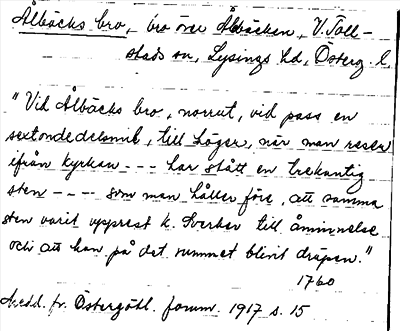 Ålbäcks bro, bro över Ålbäcken, V. Toll-
stads sn, Lysings hd, Österg. l.
"Vid Ålbäcks bro, norrut, vid pass en
sextondedelsmil, till höger, när man reser
ifrån kyrkan --- har stått en trekantig
sten ---- som man håller före, att samma
sten varit upprest k. Sverker till åminnelse
och att han på det rummet blivit dräpen."
1760
Medd. fr. Östergötl. fornm. 1917 s. 15